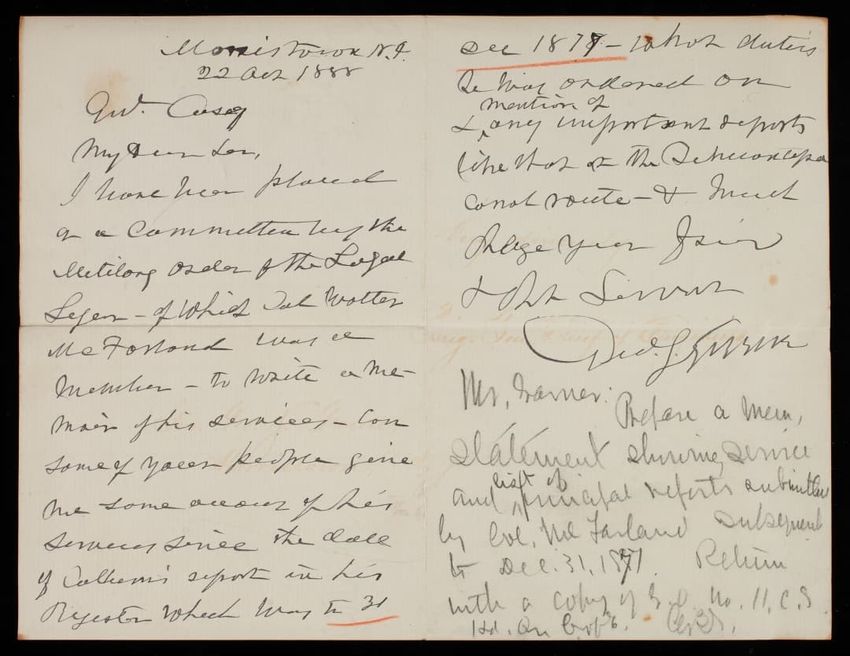 Morristown N.J.
22 Oct 1888
Genl. Casey
My Dear Sir,
I have been placed
on a Committee by the
Military order of the Loyal
Legion - of which Col Walter
McFarland was a
member - to write a me-
moir of his services - Can
some of your people give
me some account of his
services since the date
of Cullum's report in his
Register which was to 31
Dec 1878 - what duties
he was ordered on
& mention of any important reports
like that on the Tehuantepec
canal route - & much
oblige your friend
& Obt Servant
Geo. S. Greene
Mr. Warner:
Prepare a mem.
statement showing service
and list of principal reports submitted
by Col. McFarland subsequent
to Dec. 31, 1877. Return
with a copy of G.O. No. 11, C.S.
Hd. Qrs Corps E.